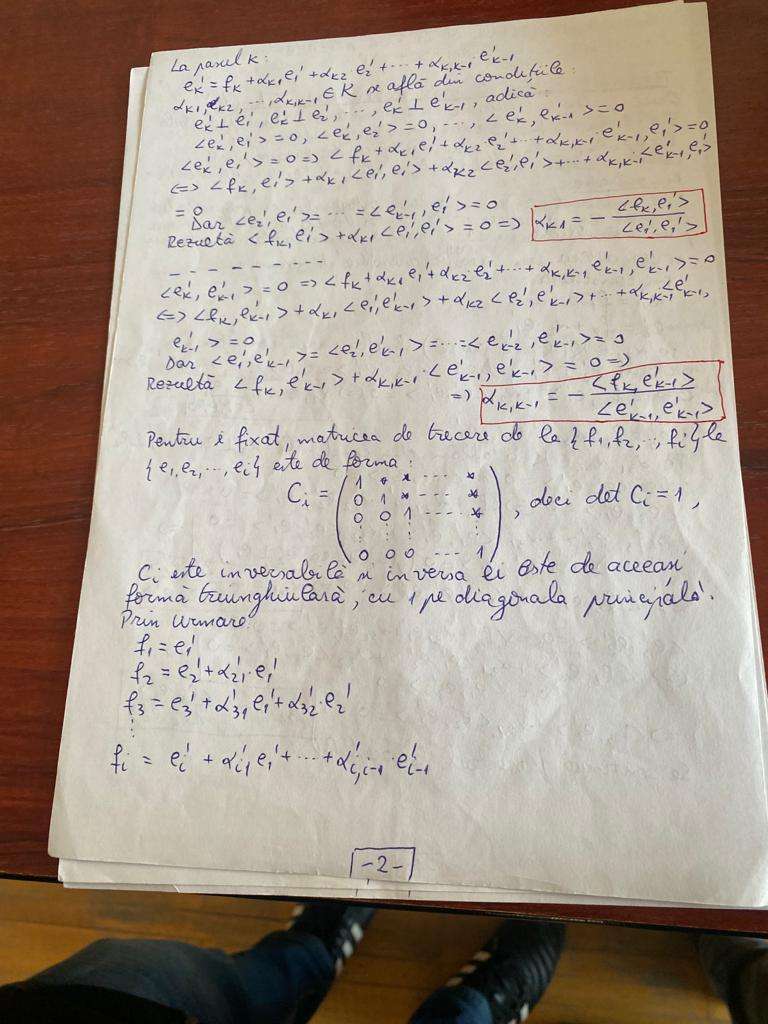 La pasul k:
e'k = fk + αk1 e'1 + αk2 e'2 + ... + αk,k-1 e'k-1
αk1, αk2, ..., αk,k-1 ∈ K se află din condițiile:
e'k ⊥ e'1, e'k ⊥ e'2, ..., e'k ⊥ e'k-1, adică:
<e'k, e'1> = 0, <e'k, e'2> = 0, ..., <e'k, e'k-1> = 0
<e'k, e'1> = 0 => <fk + αk1 e'1 + αk2 e'2 + ... + αk,k-1 · e'k-1, e'1> = 0
<=> <fk, e'1> + αk1 <e'1, e'1> + αk2 <e'2, e'1> + ... + αk,k-1 <e'k-1, e'1>
= 0
Dar <e'2, e'1> = ... = <e'k-1, e'1> = 0
Rezultă <fk, e'1> + αk1 <e'1, e'1> = 0 => αk1 = - <fk, e'1> / <e'1, e'1>
- - - - - - - - -
<e'k, e'k-1> = 0 => <fk + αk1 e'1 + αk2 e'2 + ... + αk,k-1 e'k-1, e'k-1> = 0
<=> <fk, e'k-1> + αk1 <e'1, e'k-1> + αk2 <e'2, e'k-1> + ... + αk,k-1 <e'k-1,
e'k-1> = 0
Dar <e'1, e'k-1> = <e'2, e'k-1> = ... = <e'k-2, e'k-1> = 0
Rezultă <fk, e'k-1> + αk,k-1 · <e'k-1, e'k-1> = 0 =>
=> αk,k-1 = - <fk, e'k-1> / <e'k-1, e'k-1>
Pentru i fixat, matricea de trecere de la {f1, f2, ..., fi} la
{e1, e2, ..., ei} este de forma:
1 * * --- *
0 1 * --- *
Ci = 0 0 1 --- * , deci det Ci = 1,
⋮ ⋮ ⋮ ⋮
0 0 0 --- 1
Ci este inversabilă și inversa ei este de aceeași
formă triunghiulară, cu 1 pe diagonala principală.
Prin urmare:
f1 = e'1
f2 = e'2 + α'21 · e'1
f3 = e'3 + α'31 e'1 + α'32 · e'2
⋮
fi = e'i + α'i1 e'1 + ... + α'i,i-1 · e'i-1
-2-